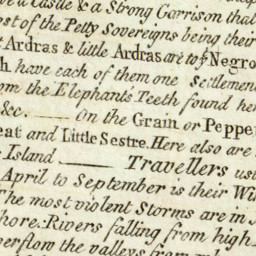 ve a Castle & a Strong Garrison that
ost of the Petty Sovereigns being their
t Ardras & little Ardras are to ye Negro
h have each of them one Settlement
om the Elephants Teeth found her
&c. —— On the Grain or Peppe
eat and Little Sestre. Here also are
Island —— Travellers us
April to September is their Win
The most violent Storms are in J
hore. Rivers falling from high
verflow the valleys from